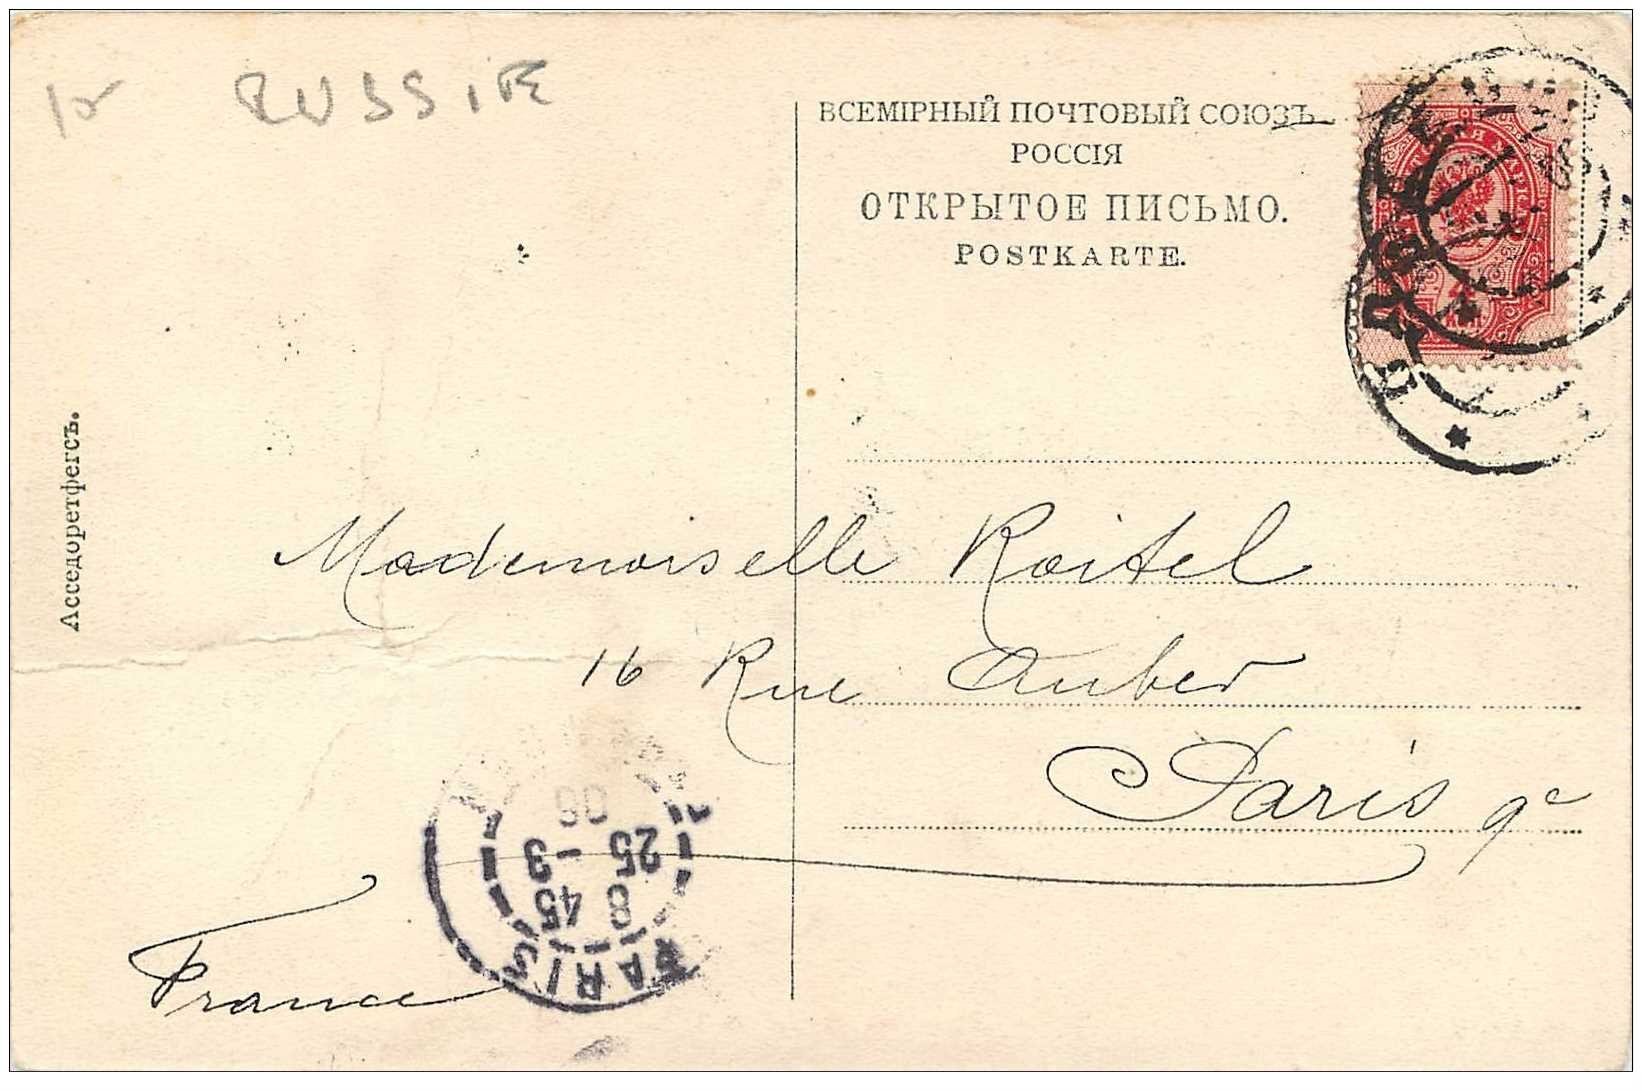 RUSSIE
ВСЕМІРНЫЙ ПОЧТОВЫЙ СОЮЗЪ
РОССІЯ
ОТКРЫТОЕ ПИСЬМО.
POSTKARTE.
Асседоретфегсъ.
Mademoiselle Roitel
16 Rue Auber
Paris 9e
France
PARIS
8 45
25 - 3
06